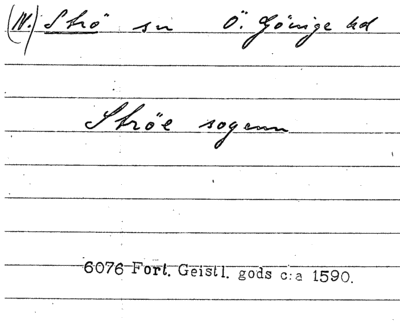 (N.) Strö sn Ö. Göinge hd
Ströe sogenn
6076 Fort. Geistl. gods c:a 1590.